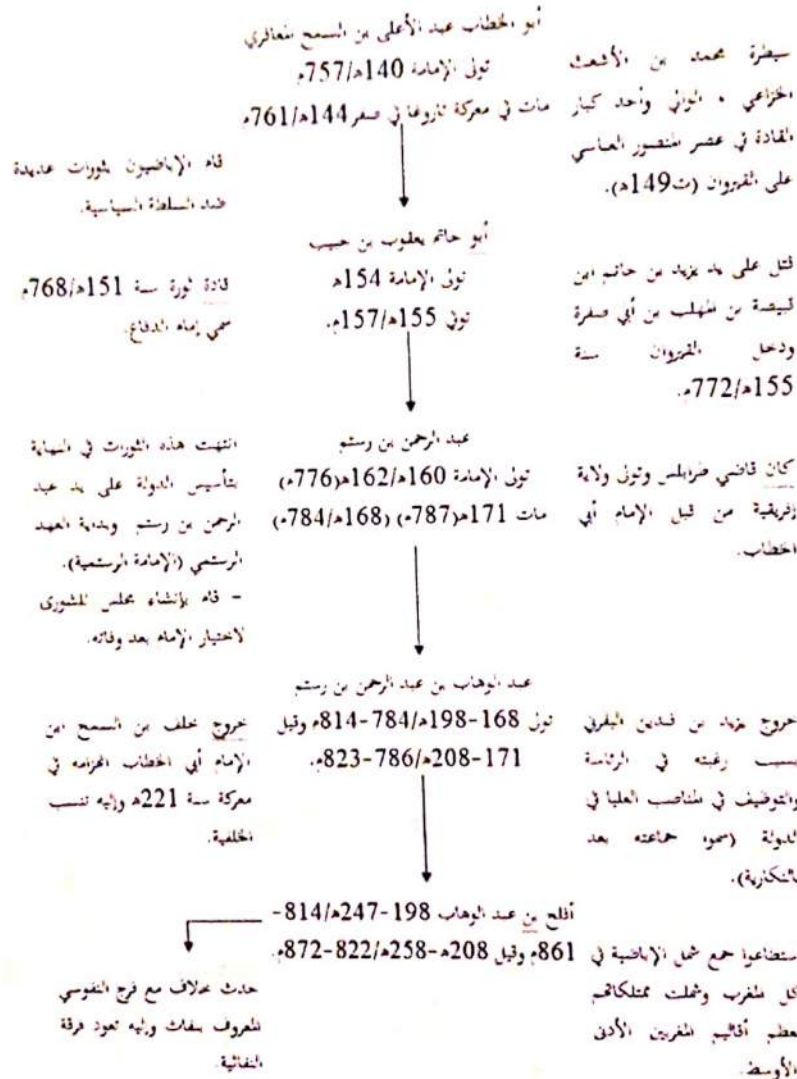 أبو الخطاب عبد الأعلى بن السمح المعافري
تولى الإمامة 140ه/757م
مات في معركة تاروغا في صفر 144ه/761م
سيطرة محمد بن الأشعث
الخزاعي ، الوالي وأحد كبار
القادة في عصر المنصور العباسي
على القيروان (ت149ه).
قام الإباضيون بثورات عديدة
ضد السلطة السياسية.
أبو حاتم يعقوب بن حبيب
تولى الإمامة 154ه
توفي 155ه/157م.
قتل على يد يزيد بن حاتم ابن
قبيصة بن المهلب بن أبي صفرة
ودخل القيروان سنة
155ه/772م.
قادة ثورة سنة 151ه/768م
سمي إمام الدفاع.
عبد الرحمن بن رستم
تولى الإمامة 160ه/162ه(776م)
مات 171ه(787م) (168ه/784م)
كان قاضي طرابلس وتولى ولاية
إفريقية من قبل الإمام أبي
الخطاب.
انتهت هذه الثورات في النهاية
بتأسيس الدولة على يد عبد
الرحمن بن رستم وبداية العهد
الرستمي (الإمامة الرستمية).
- قام بإنشاء مجلس للشورى
لاختيار الإمام بعد وفاته.
عبد الوهاب بن عبد الرحمن بن رستم
تولى 168-198ه/784-814م وقيل
171-208ه/786-823م.
خروج يزيد بن فندين اليفرني
بسبب رغبته في الرئاسة
والتوظيف في المناصب العليا في
الدولة (سموا جماعته بعد
بالنكارية).
خروج خلف بن السمح ابن
الإمام أبي الخطاب انهزامه في
معركة سنة 221ه وإليه تنسب
الخلفية.
أفلح بن عبد الوهاب 198-247ه/814-
861م وقيل 208ه-258ه/822-872م.
ستطاعوا جمع شمل الإباضية في
كل المغرب وشملت ممتلكاتهم
معظم أقاليم المغربين الأدنى
الأوسط.
حدث خلاف مع فرج النفوسي
المعروف بنفاث وإليه تعود فرقة
النفاثية.